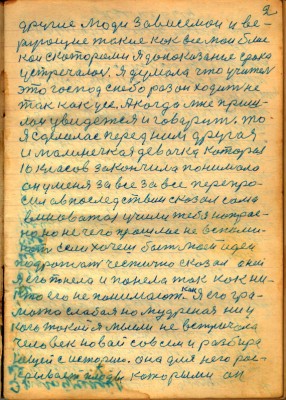 2
другие люди зависемои и ве-
рующие такие как все мои близ
кои скоторыми я до показание срока
устречалас. Я думала что учител
это господ слебо раз он ходит не
так как усе. Якогда мне приш-
лос увидется и говорит. то
я сделалас перед ним другая
и маленичкая девачка которая
10 класов закончила понимала
он уменя за все за все перепро-
сил а впоследствии сказал сама
виноватая учили тебя напрас-
но но не чего прошлае не вспоми-
сли хочеш быт моей идеи
честно сказал он и
я его поняла и поняла так как ни-
кто его не понимают. Я его гра-
мотно слабая но мудреная ни у
кого такой я мысли не встричала
человек новай совсем и разбира
ющей с историю. она для него рас-
крывает людей которыми он